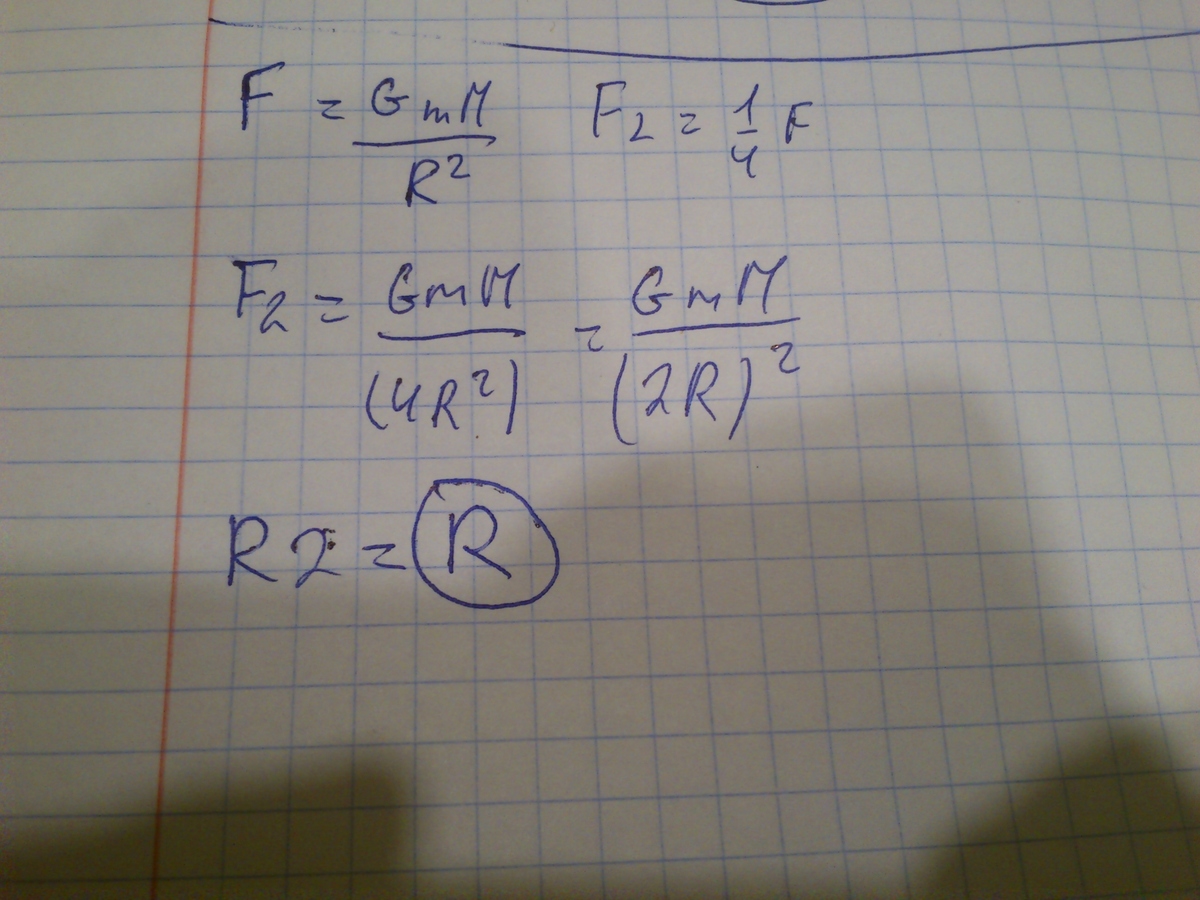 F = GmM / R² F₂ = 1/4 F
F₂ = GmM / (4R²) = GmM / (2R)²
R2 = R